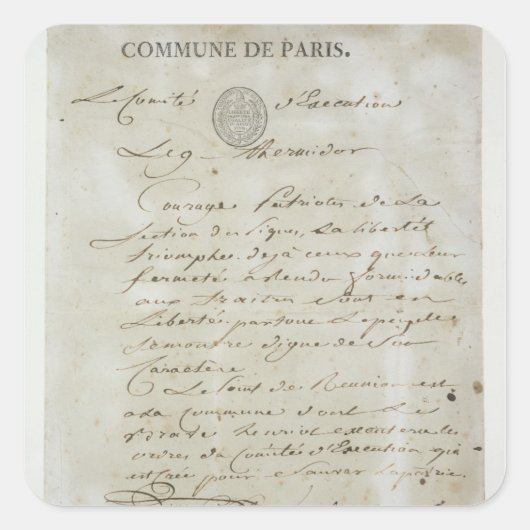 COMMUNE DE PARIS.
Le Comité d'Execution
Le 9 thermidor
Courage Patriotes de La
Section des Piques, La liberté
triomphe deja ceux que leur
fermeté a Rendu formidables
aux traitres sont en
Liberté partout Le peuple
se montre digne de Son
Caractère
Le Point de Reunion est
a La Commune dont Le
brave henriot executera les
ordres du Comité d'Execution qui
est Créé pour Sauver La patrie.